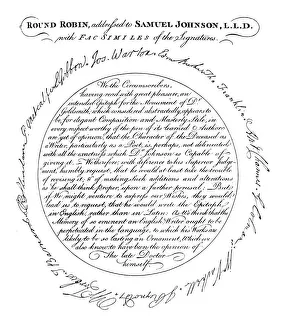 ROUND ROBIN, addressed to SAMUEL JOHNSON, L.L.D.
with FAC SIMILES of the Signatures.
We the Circumscribers,
having read with great pleasure, an
intended Epitaph for the Monument of Dr.
Goldsmith, which considered abstractedly appears to
be, for elegant Composition and Masterly Stile, in
every respect worthy of the pen of its learned Author;
are yet of opinion, that the Character of the Deceased as
a Writer, particularly as a Poet, is, perhaps, not delineated
with all the exactness which Dr. Johnson is Capable of
giving it. We therefore, with deference to his Superior Judg-
ment, humbly request, that he would at least take the trouble
of revising it; & of making such additions and alterations
as he shall think proper, upon a farther perusal; But
if We might venture to express our Wishes, they would
lead us to request, that he would write the Epitaph
in English, rather than in Latin: As We think that the
Memory of so eminent an English Writer ought to be
perpetuated in the language, to which his Works are
likely to be so lasting an Ornament, Which we
also know to have been the opinion of
The late Doctor
himself.
Jos. Warton
J. Reynolds